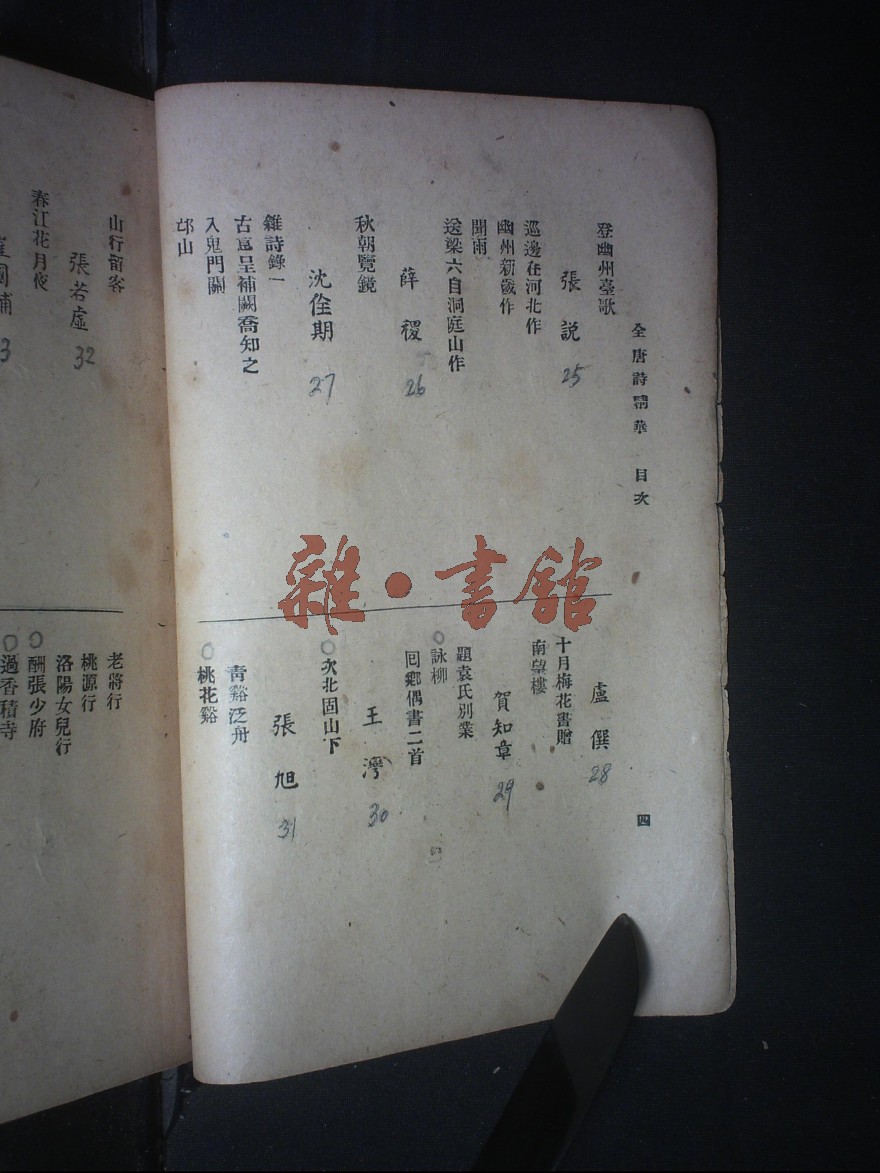 全唐詩精華 目次
四
登幽州臺歌
張說 25
巡邊在河北作
幽州新歲作
聞雨
送梁六自洞庭山作
薛稷 26
秋朝覽鏡
沈佺期 27
雜詩錄一
古意呈補闕喬知之
入鬼門關
邙山
盧僎 28
十月梅花書贈
南望樓
賀知章 29
題袁氏別業
詠柳
回鄉偶書二首
王灣 30
次北固山下
張旭 31
青谿泛舟
桃花谿
山行留客
張若虛 32
春江花月夜
老將行
桃源行
洛陽女兒行
酬張少府
過香積寺
雜·書館